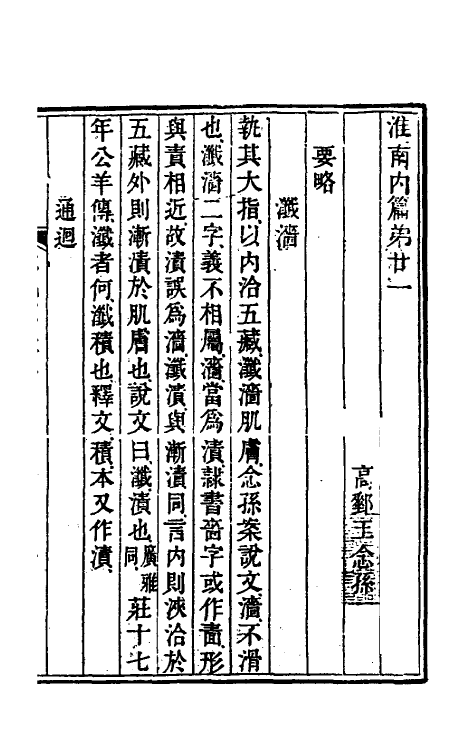 淮南內篇弟廿一
高郵王念孫
要略
瀸濇
執其大指以內洽五藏瀸濇肌膚念孫案說文濇不滑
也瀸濇二字義不相屬濇當爲漬隸書嗇字或作啬形
與責相近故漬誤爲濇瀸漬與漸漬同言內則浹洽於
五藏外則漸漬於肌膚也說文曰瀸漬也廣雅同莊十七
年公羊傳瀸者何瀸積也釋文積本又作漬
通迴